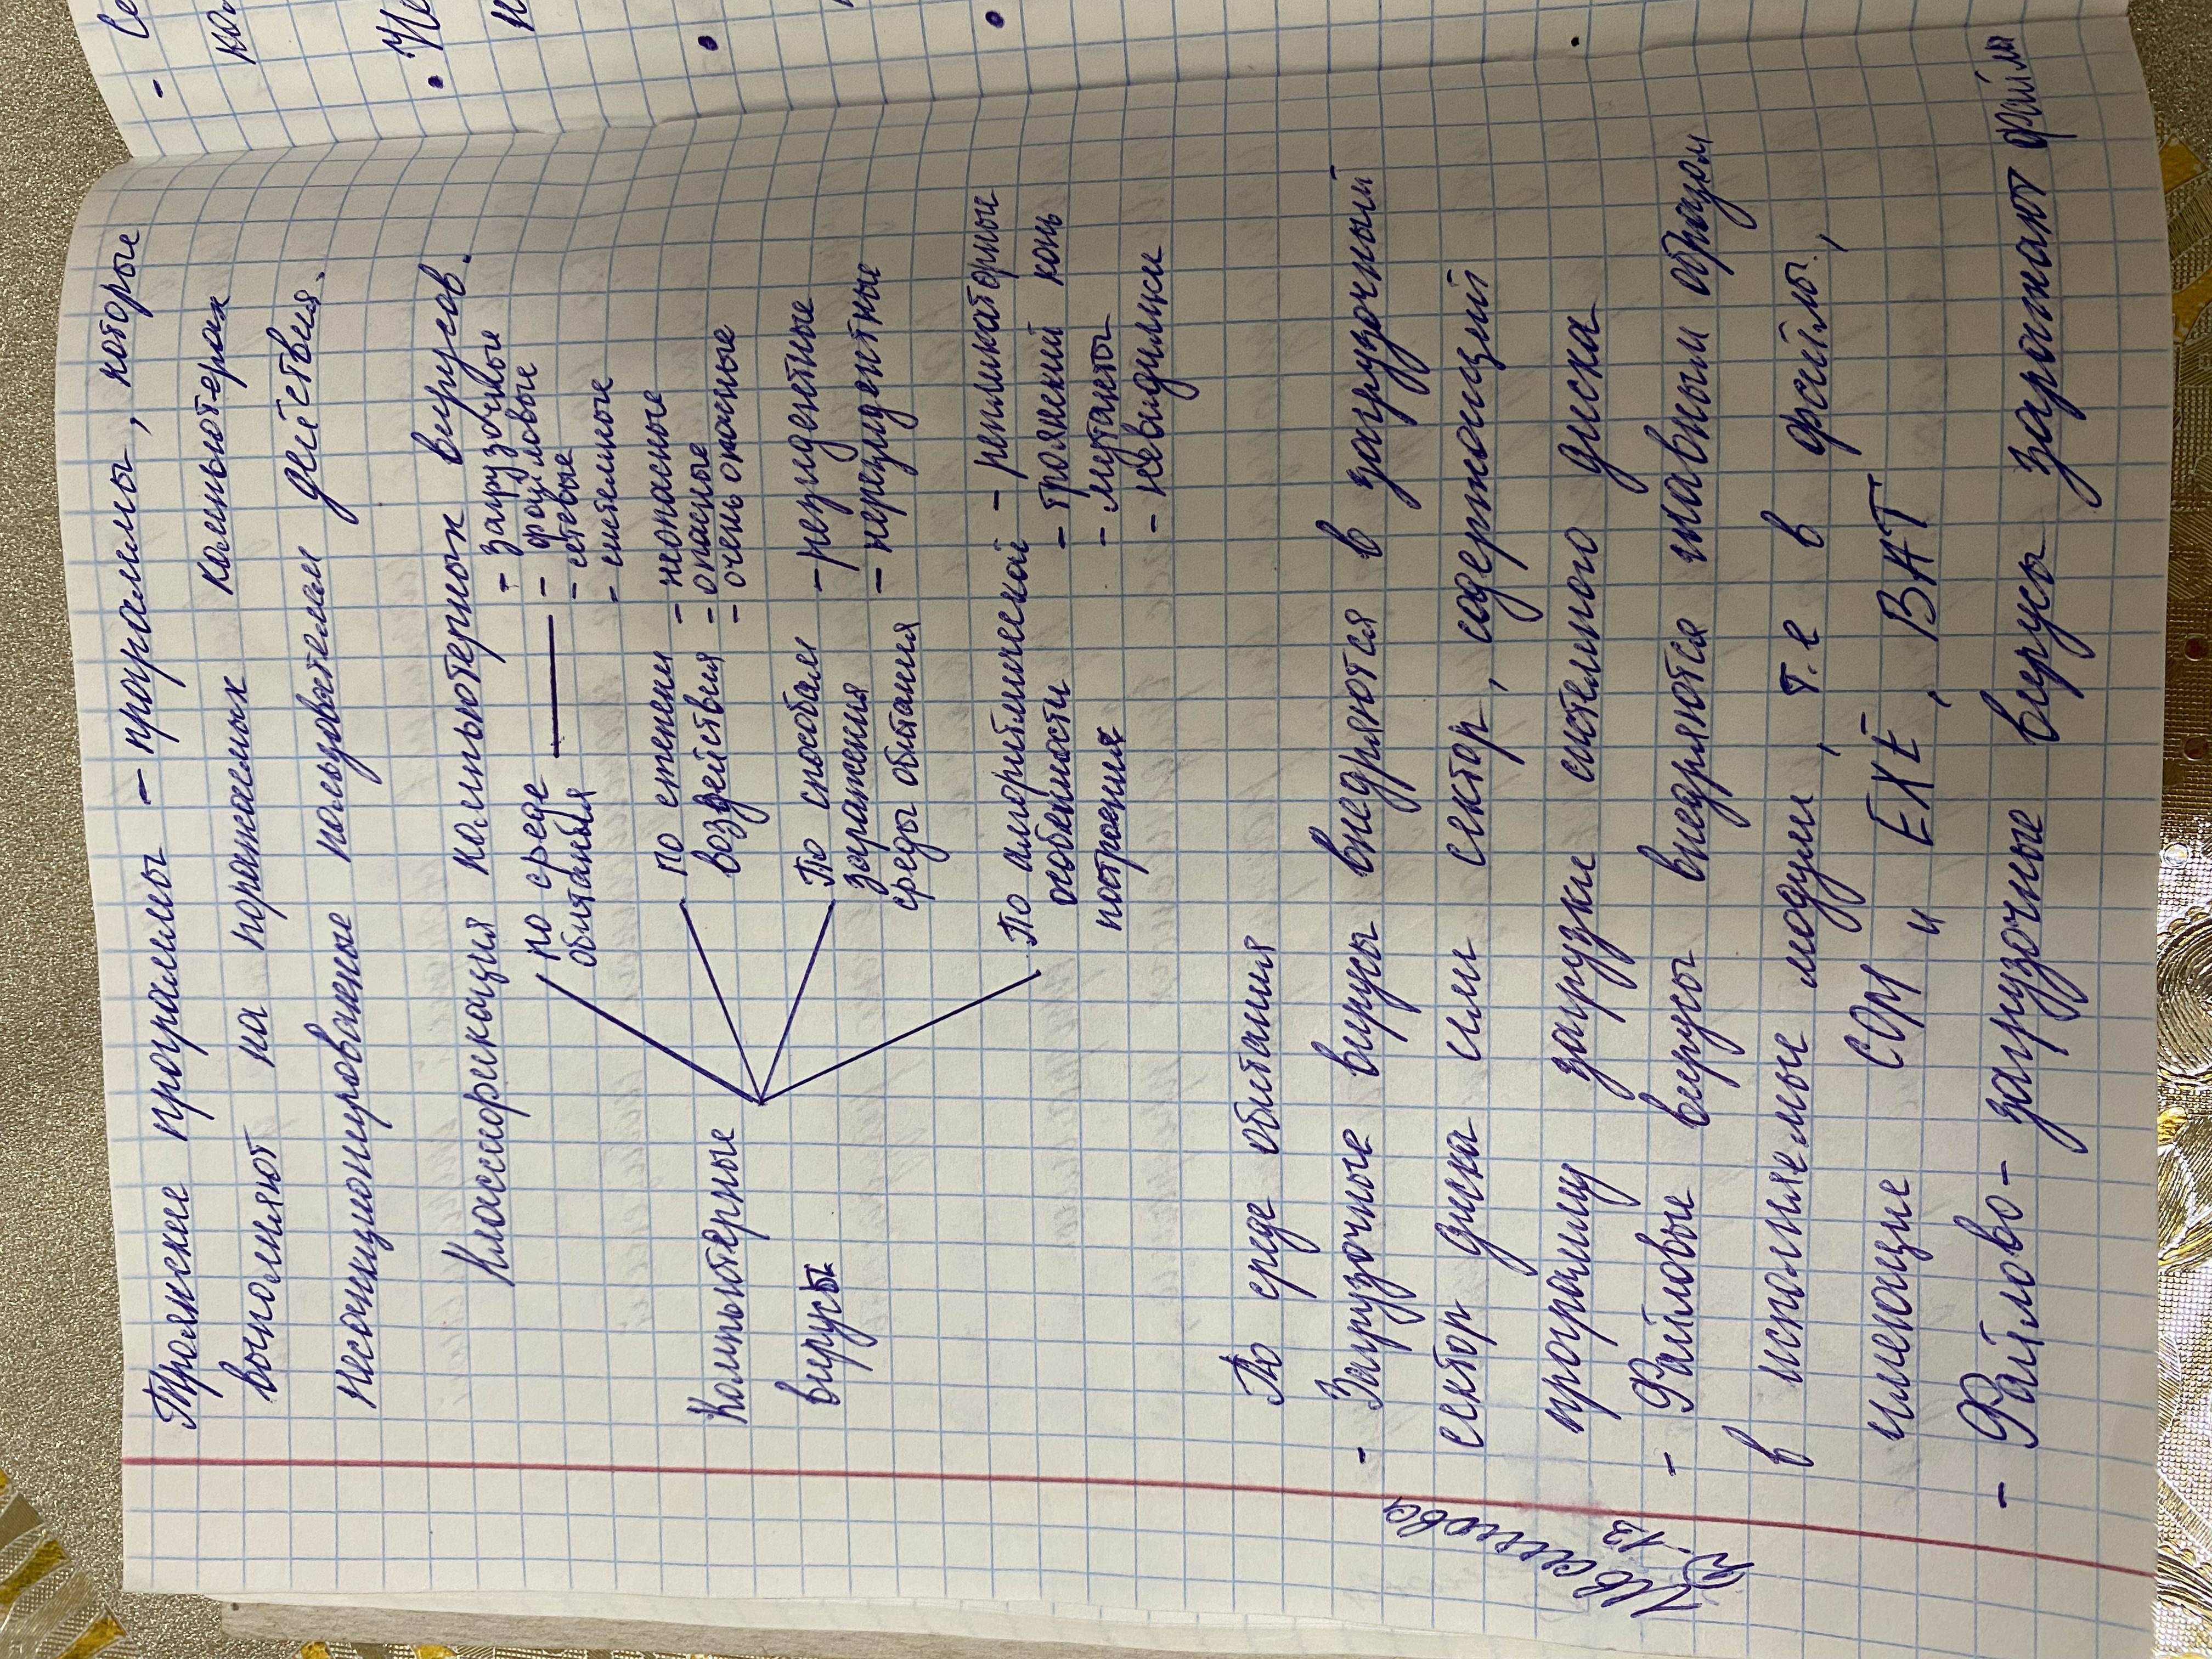 Троянские программы – программы, которые
выполняют на поражаемых компьютерах
несанкционированные пользователем действия.
Классификация компьютерных вирусов.
Компьютерные
вирусы
по среде
обитания
- загрузочные
- файловые
- сетевые
- системные
по степени
воздействия
- неопасные
- опасные
- очень опасные
По способам
заражения
среды обитания
- резидентные
- нерезидентные
По алгоритмической
особенности
построения
- репликаторные
- троянский конь
- мутанты
- невидимки
По среде обитания
- Загрузочные вирусы внедряются в загрузочный
сектор диска или сектор, содержащий
программу загрузки системного диска
- Файловые вирусы внедряются главным образом
в исполняемые модули, т.е в файлы,
имеющие COM и EXE, BAT
- Файлово-загрузочные вирусы заражают файлы